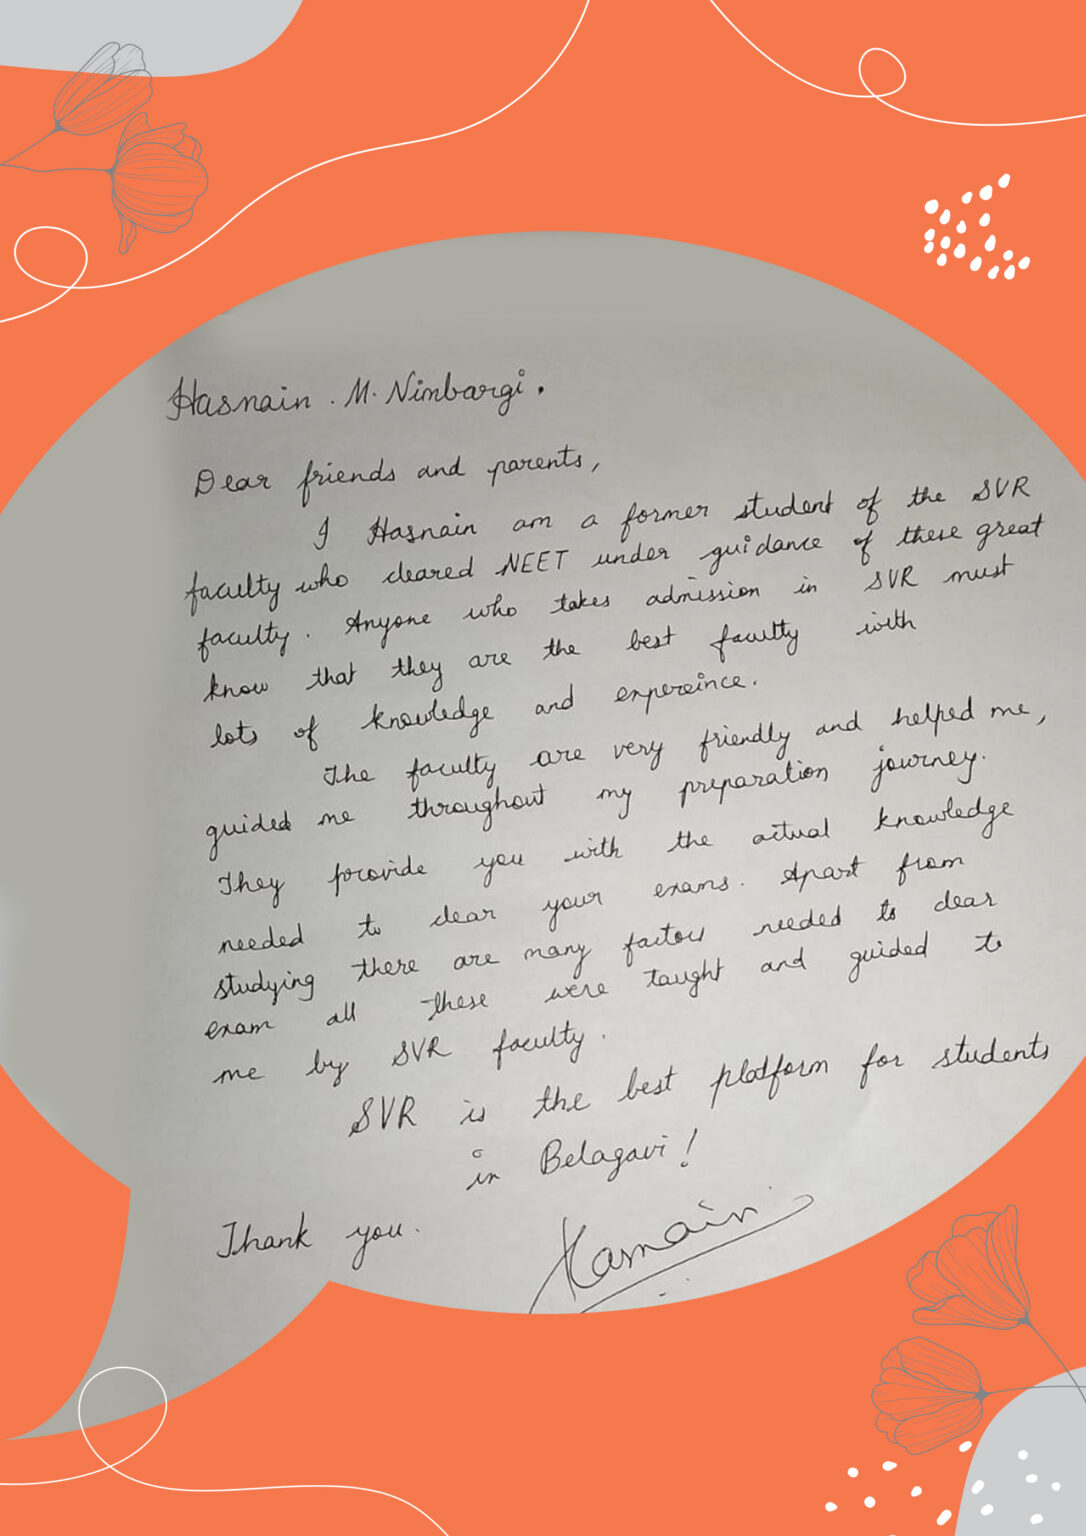 Hasnain . M. Nimbargi.
Dear friends and parents,
I Hasnain am a former student of the SVR
faculty who cleared NEET under guidance of these great
faculty. Anyone who takes admission in SVR must
know that they are the best faculty with
lots of knowledge and expereince.
The faculty are very friendly and helped me,
guided me throughout my preparation journey.
They provide you with the actual knowledge
needed to clear your exams. Apart from
studying there are many factors needed to clear
exam all these were taught and guided to
me by SVR faculty.
SVR is the best platform for students
in Belagavi!
Thank you.
Hasnain